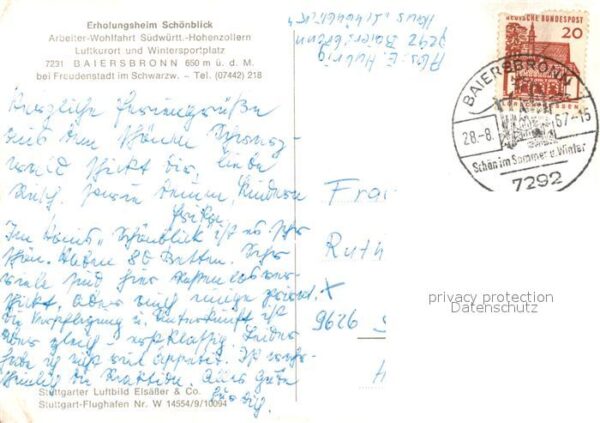 Erholungsheim Schönblick
Arbeiter-Wohlfahrt Südwürtt.-Hohenzollern
Luftkurort und Wintersportplatz
7231 BAIERSBRONN 650 m ü. d. M.
bei Freudenstadt im Schwarzw. – Tel. (07442) 218
Herzliche Feriengrüße
aus dem schönen Schwarz-
wald schickt dir, liebe
Ruth, sowie deinen Kindern
Im Haus "Schönblick ist es sehr
schön. Haben 80 Betten. Sehr
viele sind hier
schickt, aber auch einige privat.
Die Verpflegung u. Unterkunft ist
aber gleich - erstklassig. Leider
habe ich nicht viel Appetit. Ist wahr-
scheinlich die Reaktion. Alles Gute
Stuttgarter Luftbild Elsäßer & Co.
Stuttgart-Flughafen Nr. W 14554/9/10094
Abs.: E.
7292 Baiersbronn
Haus "Schönblick"
DEUTSCHE BUNDESPOST
20
BAIERSBRONN
28.-8. 67-15
Schön im Sommer u. Winter
7292
Frau
Ruth
9626
privacy protection
Datenschutz